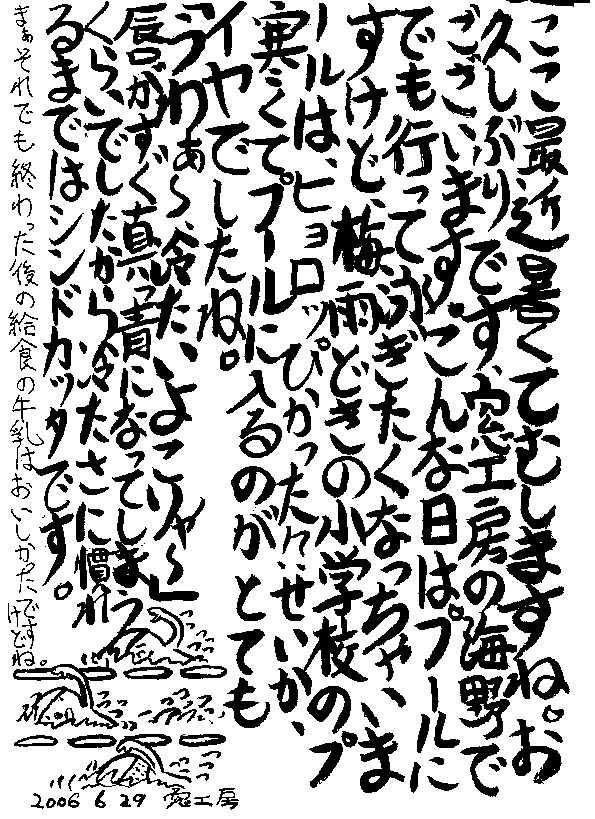 ここ最近暑くてむしますね。お
久しぶりです、窓工房の海野で
ございます。こんな日はプールに
でも行って泳ぎたくなっちゃいま
すけど、梅雨どきの小学校のプ
ールは、ヒョロッぴかったせいか、
寒くてプールに入るのがとても
イヤでしたね。
「うわぁ〜、冷たいよこりゃ〜」
唇がすぐ真っ青になってしまう
くらいでしたから冷たさに慣れ
るまではシンドカッタです。
まぁそれでも終わった後の給食の牛乳はおいしかったですけどね。
2006 6 29 窓工房